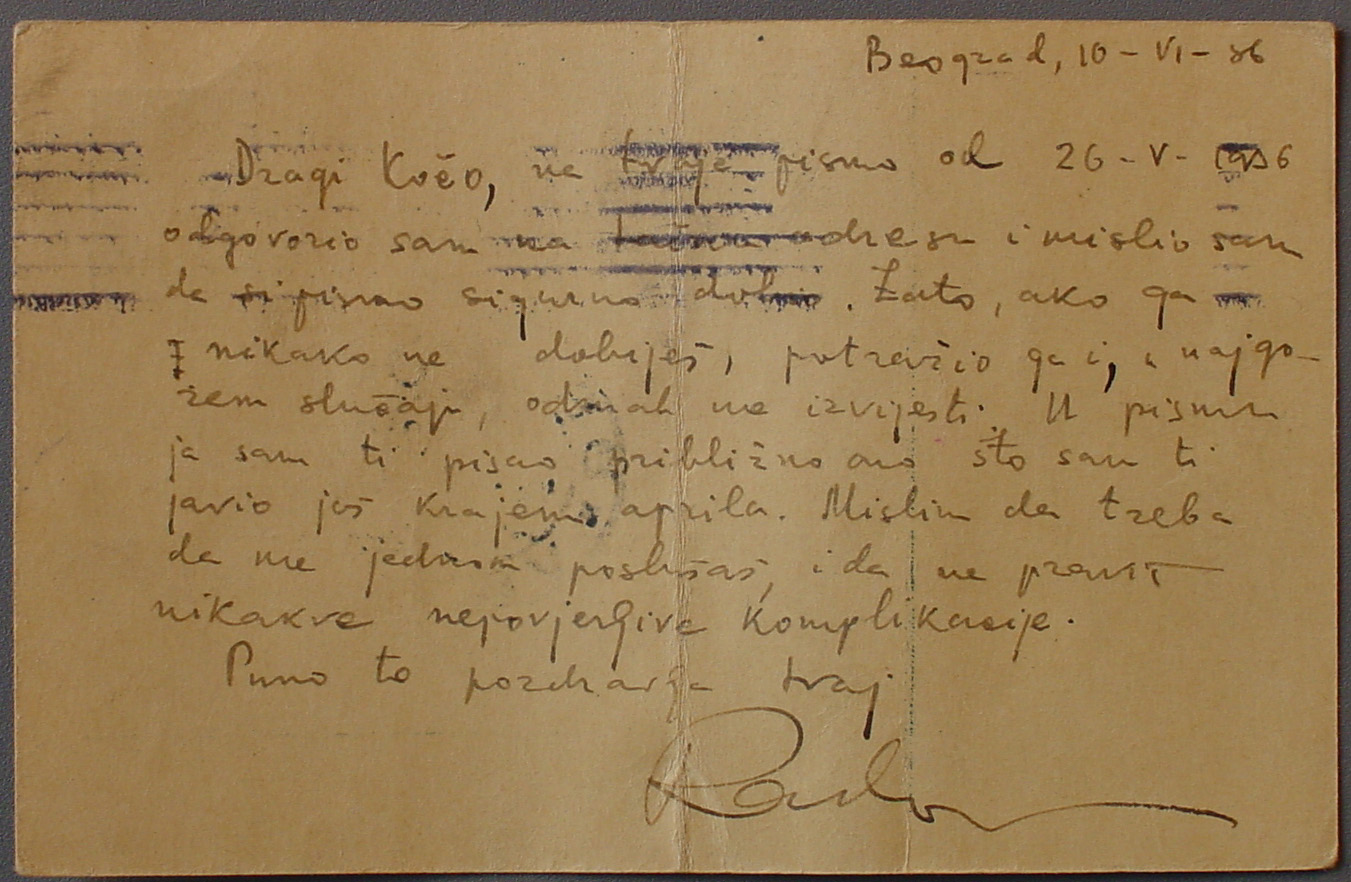 Beograd, 10-VI-36
Dragi Kočo, na tvoje pismo od 26-V-1936
odgovorio sam na tačnu adresu i mislio sam
da si pismo sigurno dobio. Zato, ako ga
nikako ne dobiješ, potražio ga i, u najgo-
rem slučaju, odmah me izvijesti. U pismu
ja sam ti pisao približno ono što sam ti
javio još krajem aprila. Mislim da treba
da me jednom poslušaš, i da ne praviš
nikakve nepovjerljive komplikacije.
Puno te pozdravlja tvoj